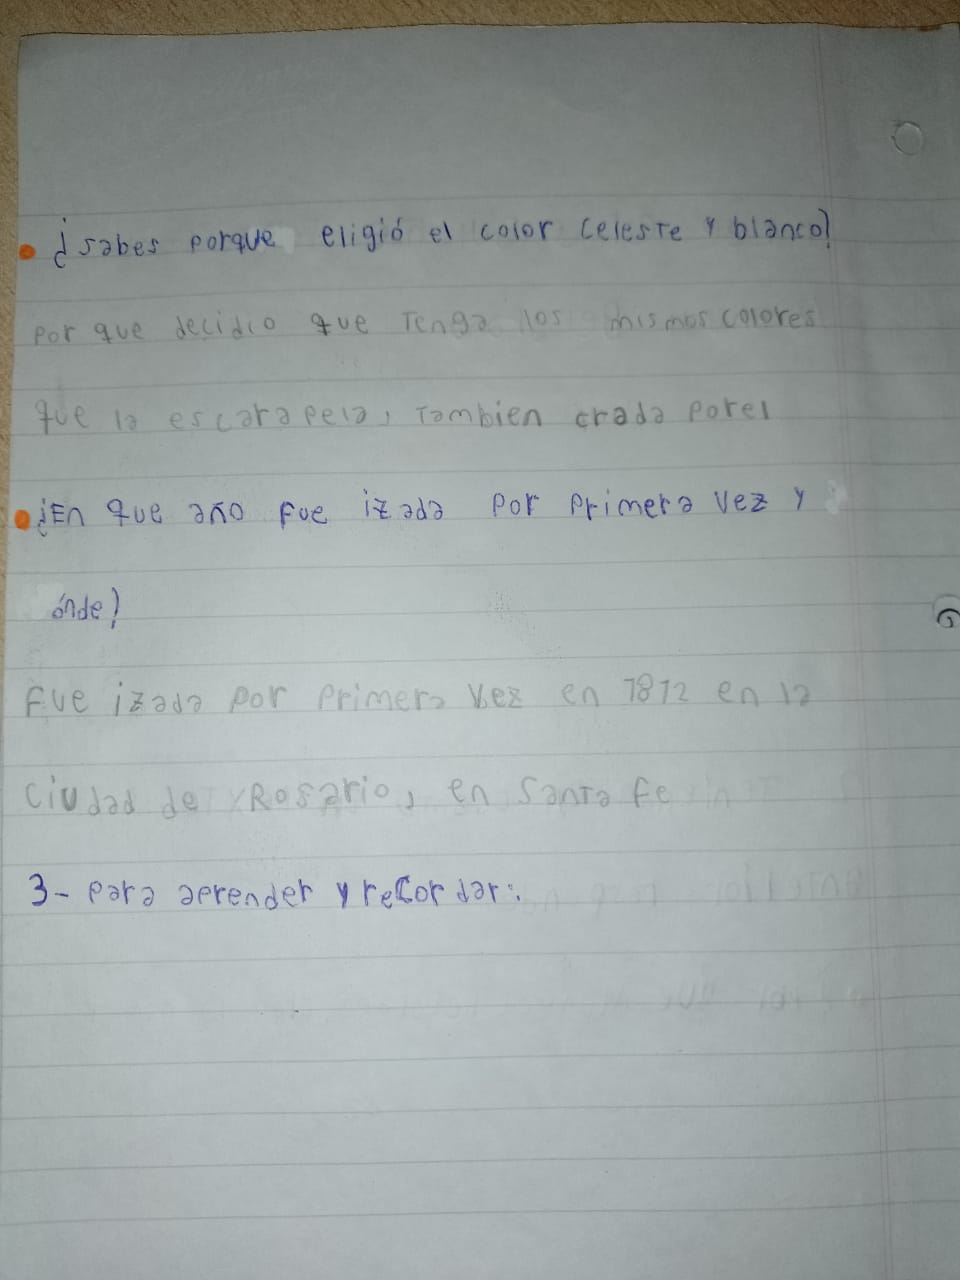 ¿sabes porque eligió el color celeste y blanco?
Por que decidio que Tenga los mismos colores
que la escarapela, Tambien crada porel
¿En que año fue izada por primera vez y
ónde?
Fue izada por primera vez en 1812 en la
Ciudad de Rosario, en Santa fe
3- Para aprender y recordar: